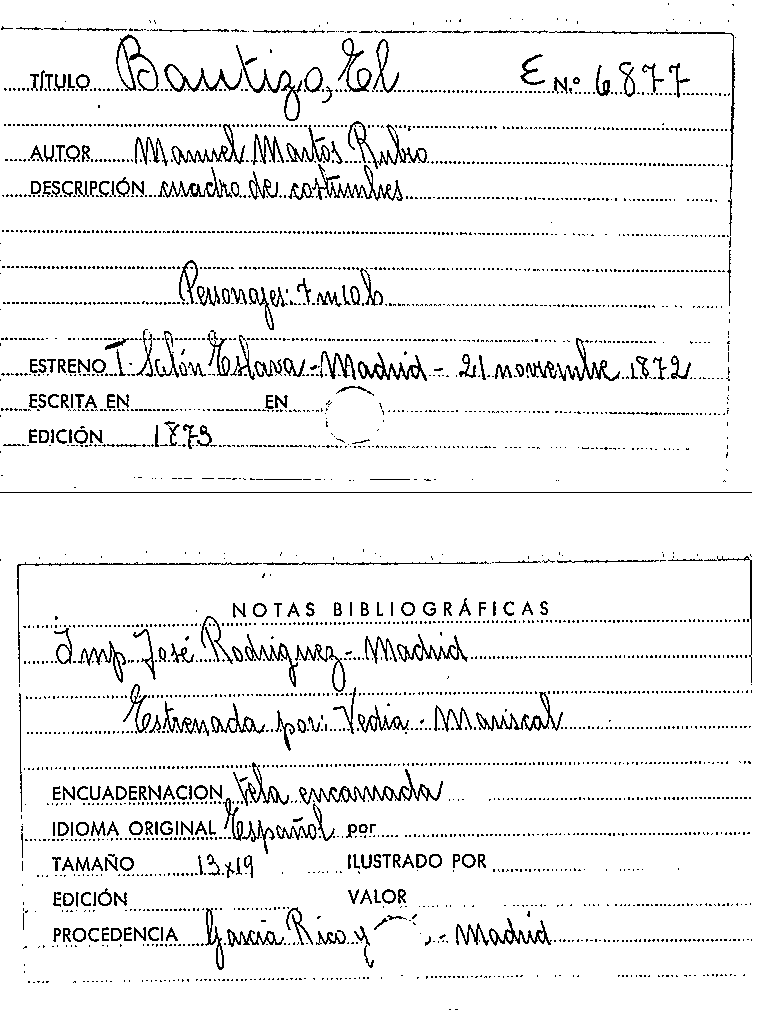 TÍTULO Bautizo, El E N.º 6877
AUTOR Manuel Martos Rubio
DESCRIPCIÓN cuadro de costumbres
Personajes: 7 m 10 h
ESTRENO T. Salón Eslava - Madrid - 21 noviembre 1872
ESCRITA EN EN
EDICIÓN 1873
NOTAS BIBLIOGRÁFICAS
Imp. José Rodríguez - Madrid
Estrenada por: Vedia - Mariscal
ENCUADERNACION tela encarnada
IDIOMA ORIGINAL Español por
TAMAÑO 13x19 ILUSTRADO POR
EDICIÓN VALOR
PROCEDENCIA García Rico y - Madrid